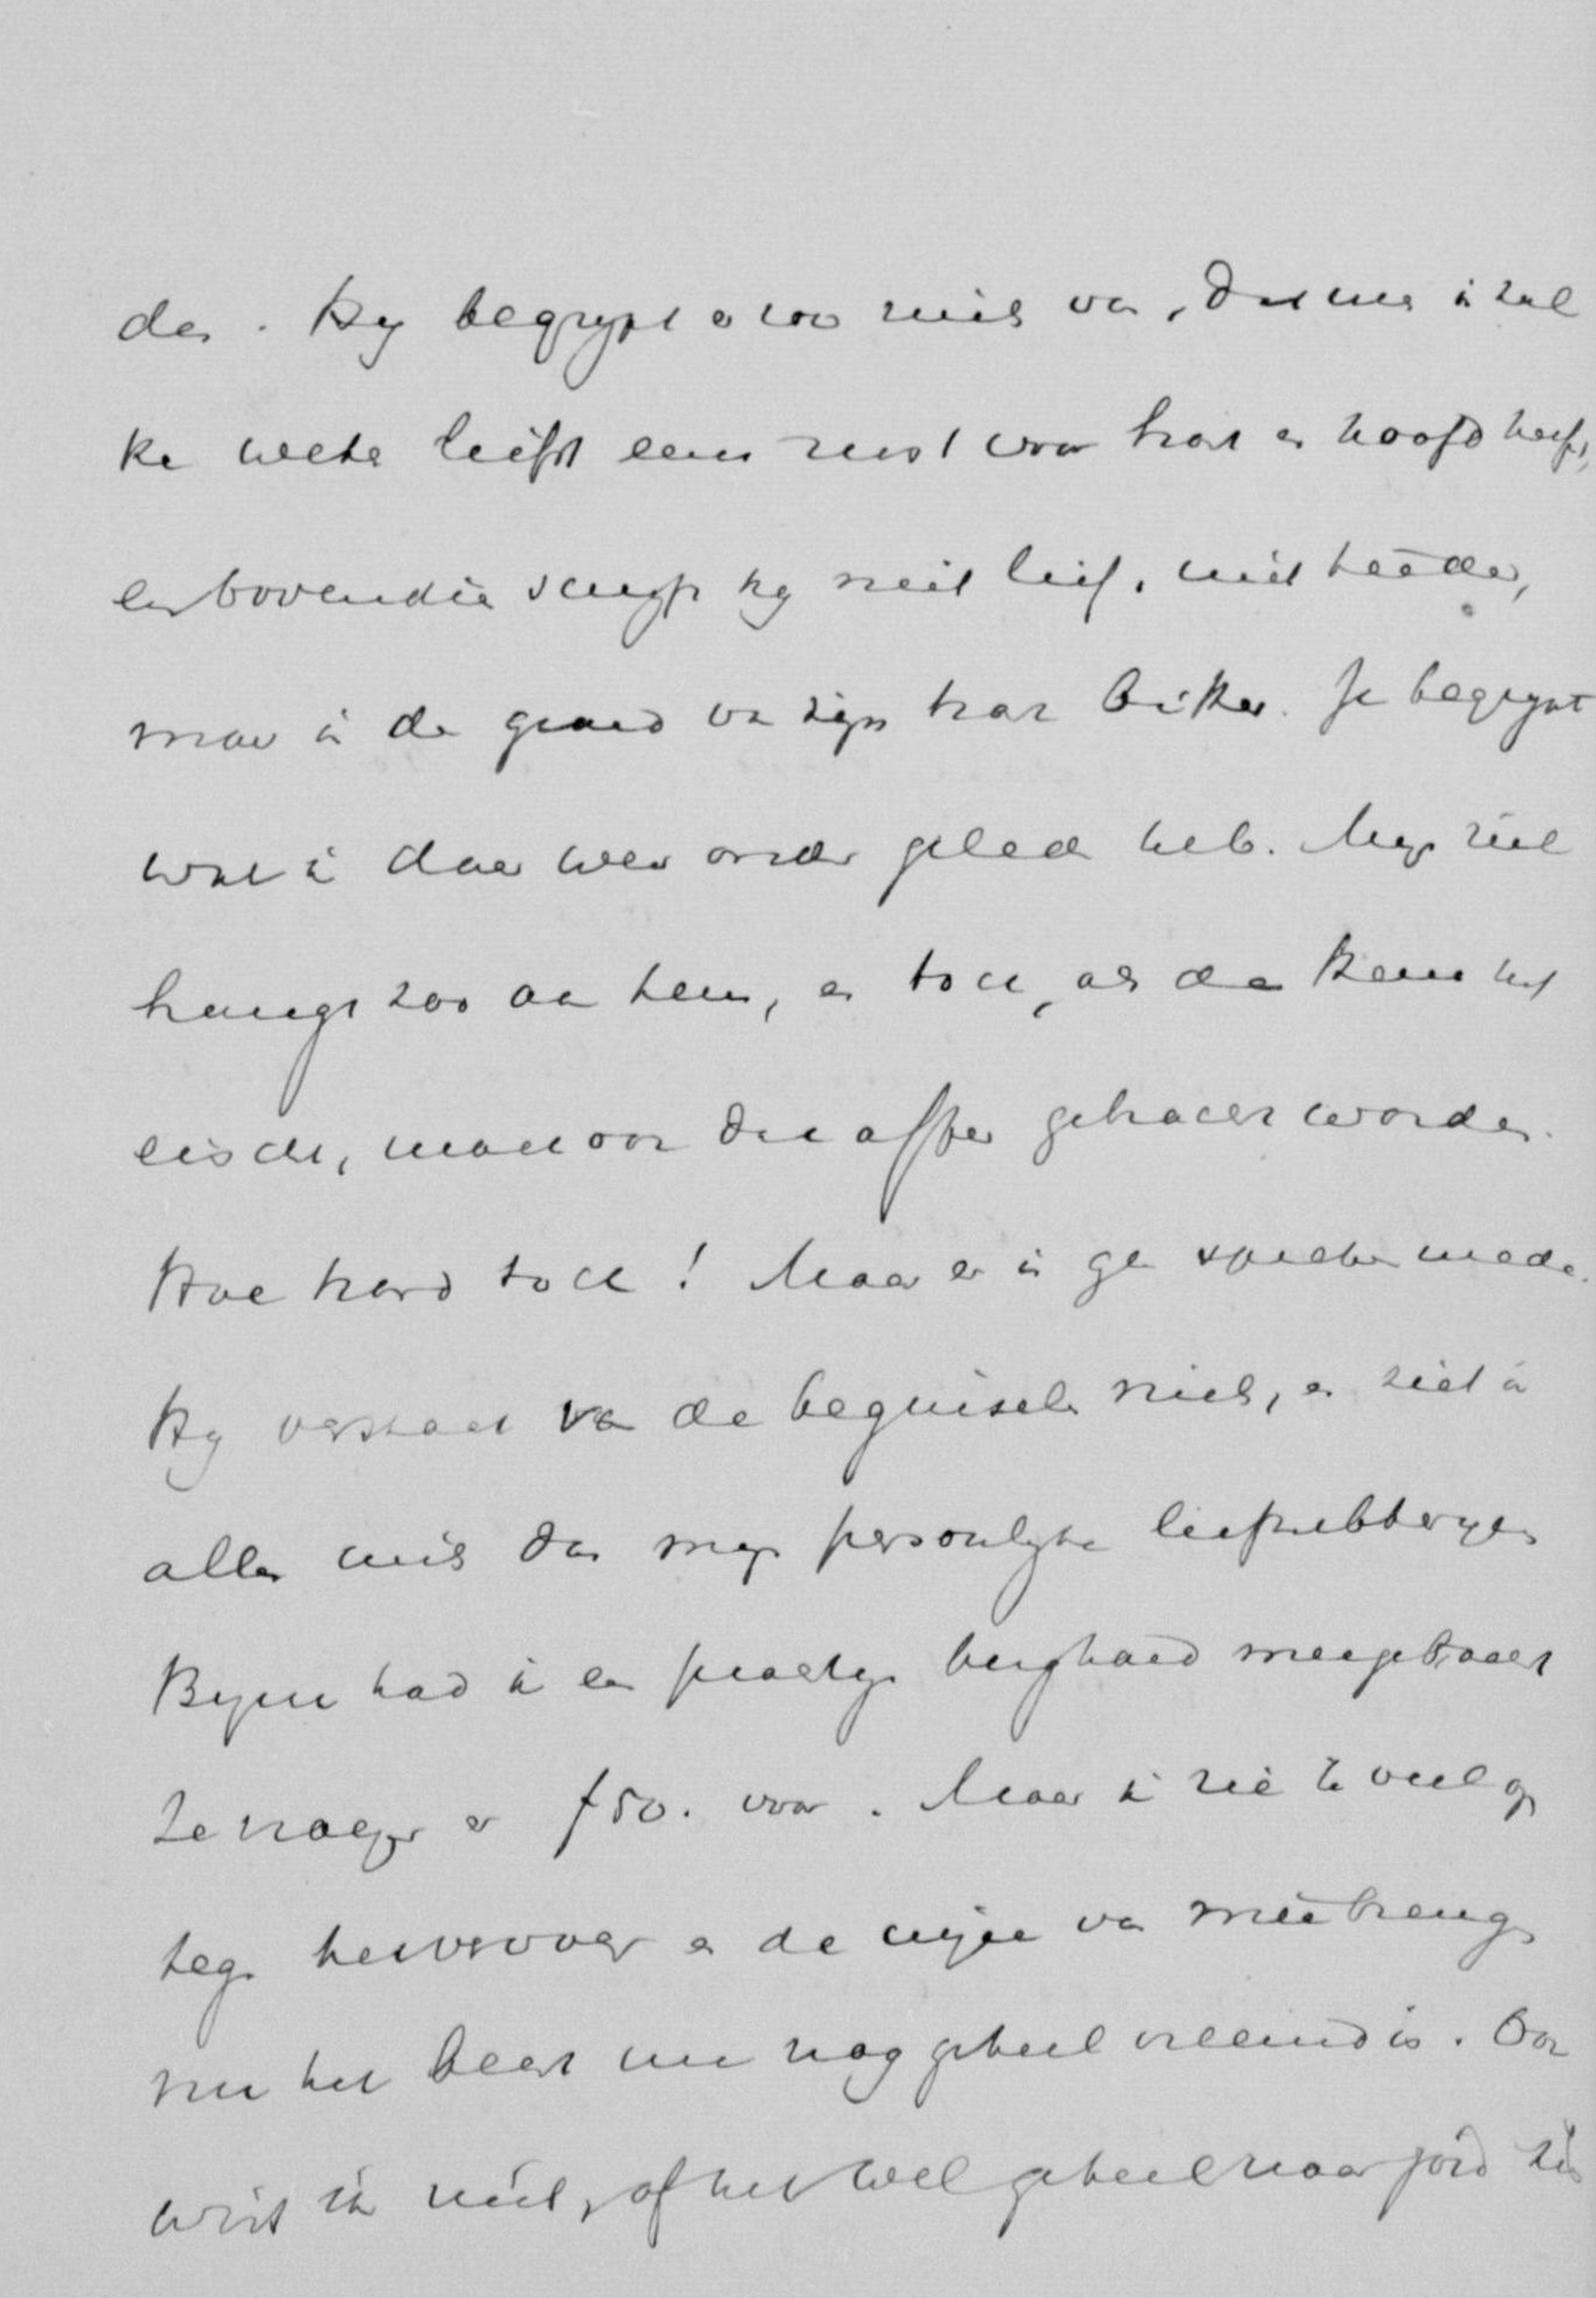 den. Hy begrypt er zoo niets van, dat men in zul
ke weken liefst eens rust voor hart en hoofd heeft,
en bovendien scherp hy niet lief, niet teeder,
maar in de grond van zijn hart bitter. Je begrypt
wat ik daar weer onder geleden heb. Myn ziel
hangt zoo aan hem, en toch, als de Heere het
eischt, moet ook dat offer gebracht worden.
Hoe hard toch! Maar er is geen spreken mede.
Hy verstaat van de beginselen niets, en ziet in
alles niets dan myn persoonlyke liefhebberyen
Byna had ik een prachtigen berghond meegebracht
Ze vroegen er f 50. voor. Maar ik zie te veel op
tegen het vervoer en de wijze van meebrengen
nu het beest me nog geheel vreemd is. Ook
wist ik niet, of het wel geheel naar jou zin